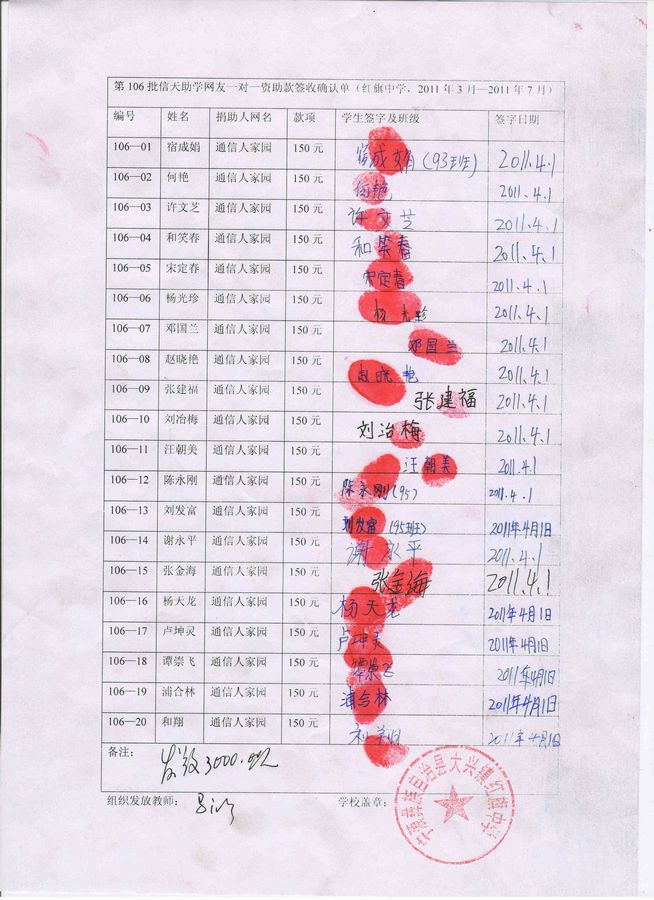 第106批信天助学网友一对一资助款签收确认单（红旗中学，2011年3月—2011年7月）
编号 姓名 捐助人网名 款项 学生签字及班级 签字日期
106—01 宿成娟 通信人家园 150元 宿成娟(93班) 2011.4.1
106—02 何艳 通信人家园 150元 何艳 2011.4.1
106—03 许文芝 通信人家园 150元 许文芝 2011.4.1
106—04 和笑春 通信人家园 150元 和笑春 2011.4.1
106—05 宋定春 通信人家园 150元 宋定春 2011.4.1
106—06 杨光珍 通信人家园 150元 杨光珍 2011.4.1
106—07 邓国兰 通信人家园 150元 邓国兰 2011.4.1
106—08 赵晓艳 通信人家园 150元 赵晓艳 2011.4.1
106—09 张建福 通信人家园 150元 张建福 2011.4.1
106—10 刘冶梅 通信人家园 150元 刘治梅 2011.4.1
106—11 汪朝美 通信人家园 150元 汪朝美 2011.4.1
106—12 陈永刚 通信人家园 150元 陈永刚(95) 2011.4.1
106—13 刘发富 通信人家园 150元 刘发富(95班) 2011年4月1日
106—14 谢永平 通信人家园 150元 谢永平 2011.4.1
106—15 张金海 通信人家园 150元 张金海 2011.4.1
106—16 杨天龙 通信人家园 150元 杨天龙 2011年4月1日
106—17 卢坤灵 通信人家园 150元 卢坤灵 2011年4月1日
106—18 谭崇飞 通信人家园 150元 谭崇飞 2011年4月1日
106—19 浦合林 通信人家园 150元 浦合林 2011年4月1日
106—20 和翔 通信人家园 150元 和翔 2011年4月1日
备注： 发放3000.
组织发放教师： 学校盖章：
宁蒗彝族自治县大兴镇红旗中学